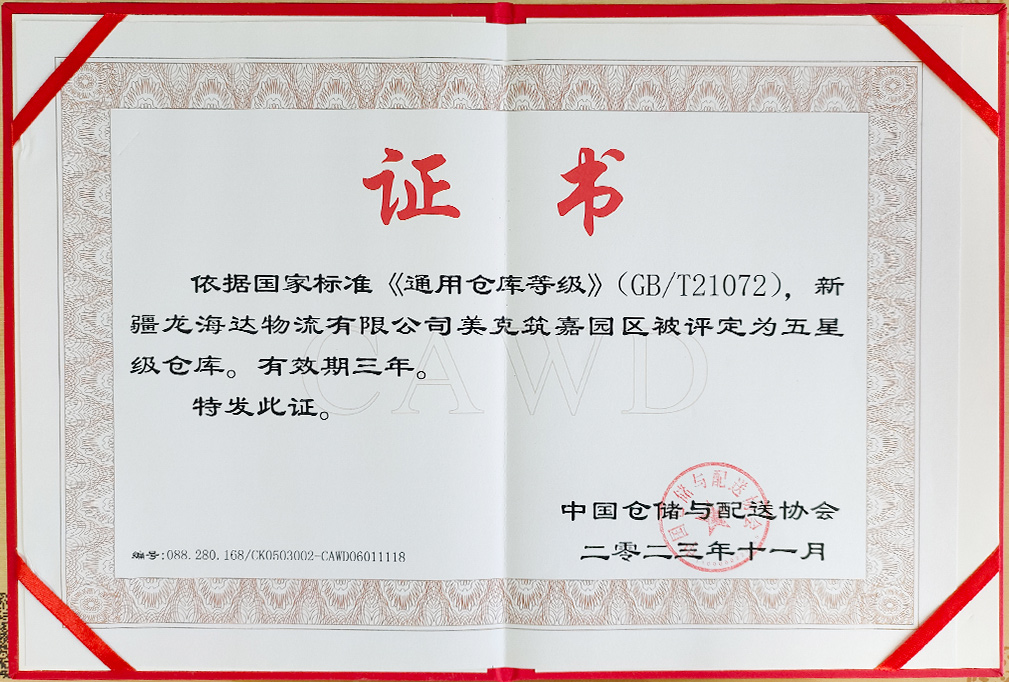 证 书
依据国家标准《通用仓库等级》(GB/T21072),新
疆龙海达物流有限公司美克筑嘉园区被评定为五星
级仓库。有效期三年。
特发此证。
CAWD
中国仓储与配送协会
二零二三年十一月
编号:088.280.168/CK0503002-CAWD06011118
中国仓储与配送协会